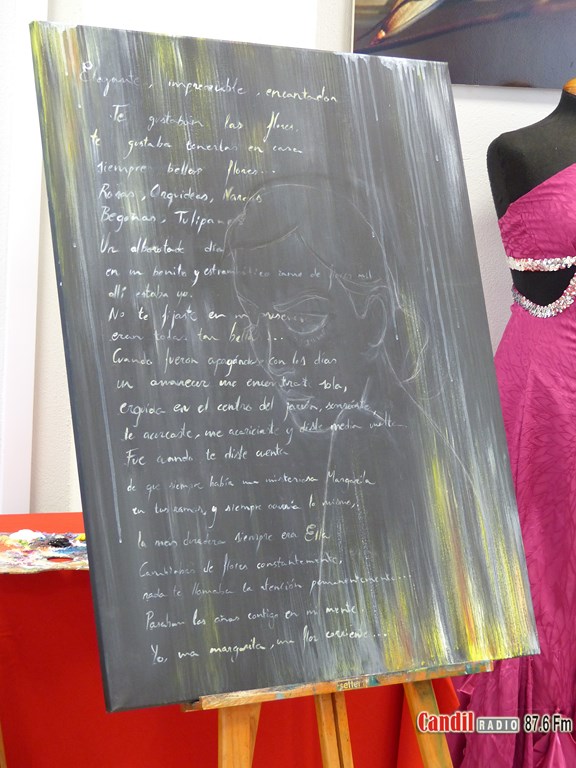 Elegante, imprevisible, encantador
Te gustaban las flores,
te gustaba tenerlas en casa
siempre bellas flores...
Rosas, Orquideas, Narcisos
Begonias, Tulipanes
Un alborotado día
en un bonito y estrambótico ramo de flores mil
allí estaba yo.
No te fijaste en mi
eran todas tan bellas...
Cuando fueron apagándose con los días
un amanecer me encontraste sola,
erguida en el centro del jarrón, sonriente,
te acercaste, me acariciaste y diste media vuelta
Fue cuando te diste cuenta
de que siempre había una misteriosa Margarita
en tus ramos, y siempre nacería la misma,
la mas duradera siempre era Ella
Cambiamos de flores constantemente,
nada te llamaba la atención permanentemente...
Pasaban los años contigo en mi mente
Yo, una margarita, una flor corriente...
Candil RADIO 87.6 Fm